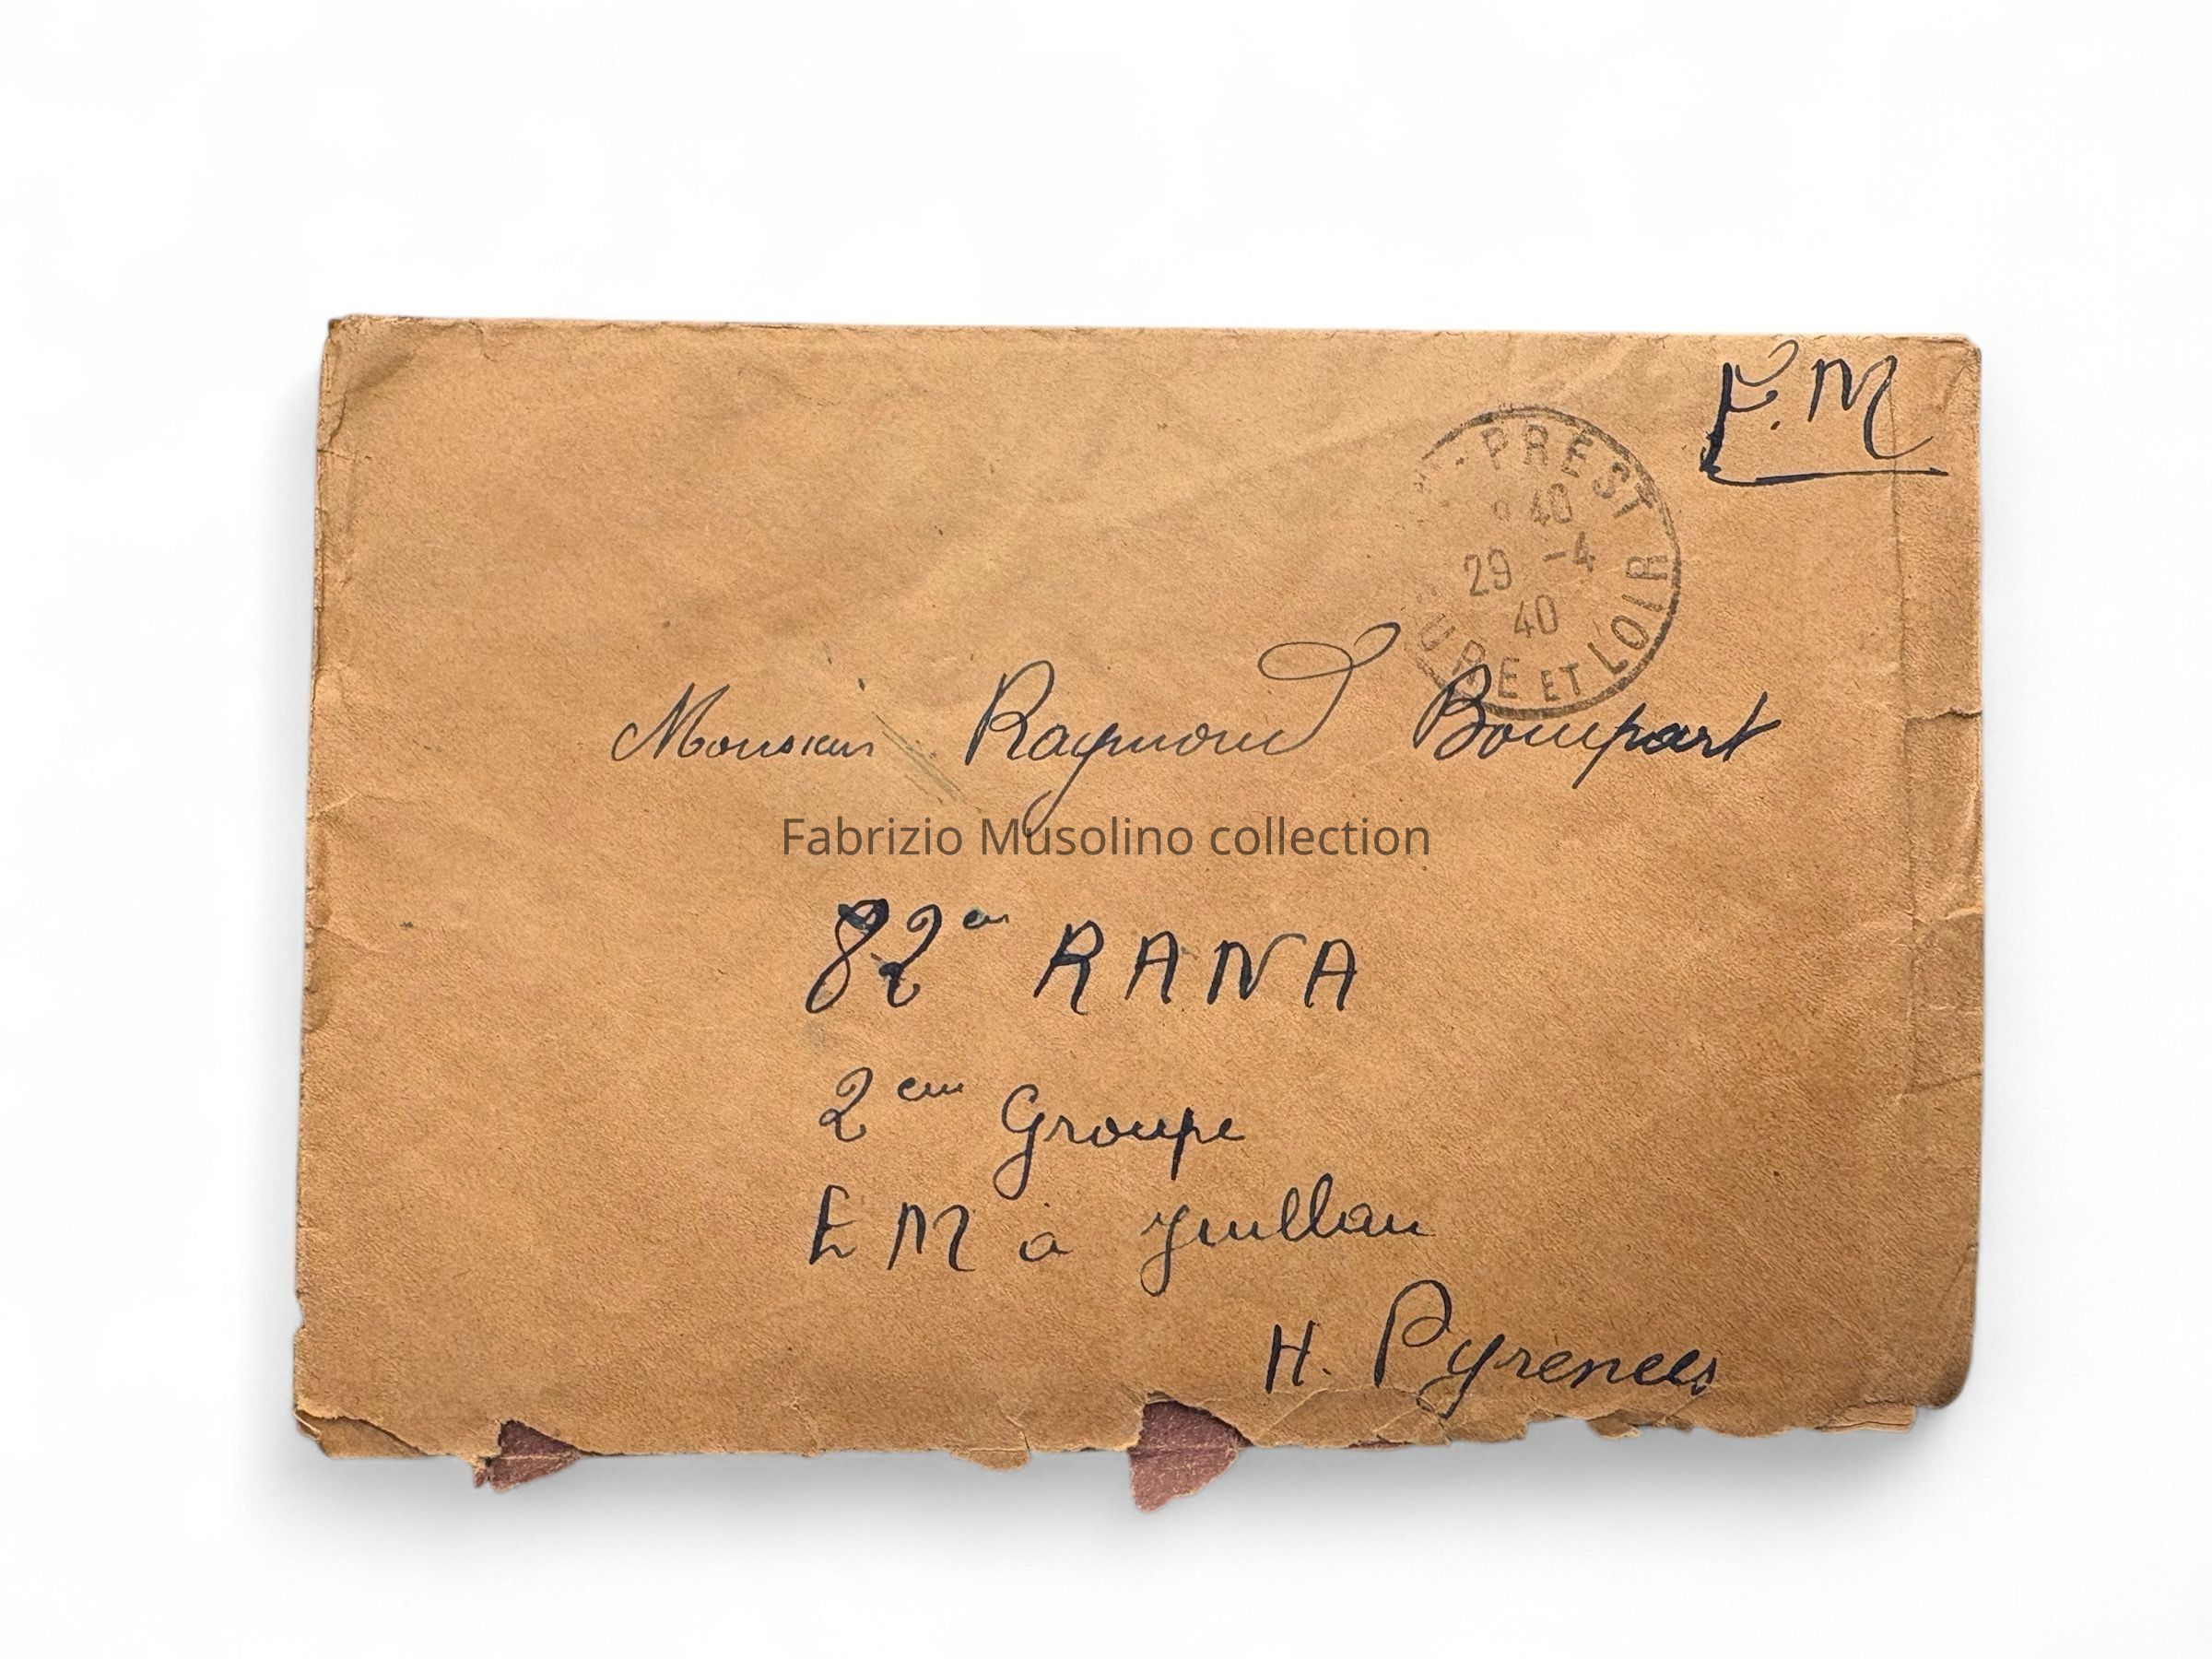 F.M
- PREST
40
29 -4
40
EURE ET LOIR
Monsieur Raymond Bompart
Fabrizio Musolino collection
82em RANA
2em Groupe
EM à Juillan
H. Pyrenees